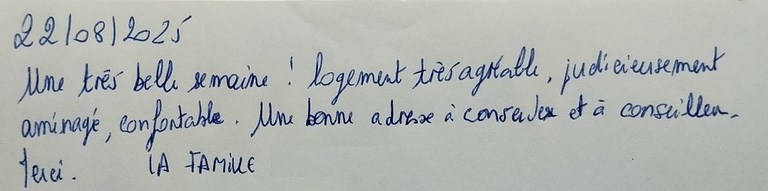 22/08/2025
Une très belle semaine ! logement très agréable, judicieusement
aménagé, confortable. Une bonne adresse à conserver et à conseiller.
Merci. LA FAMILLE